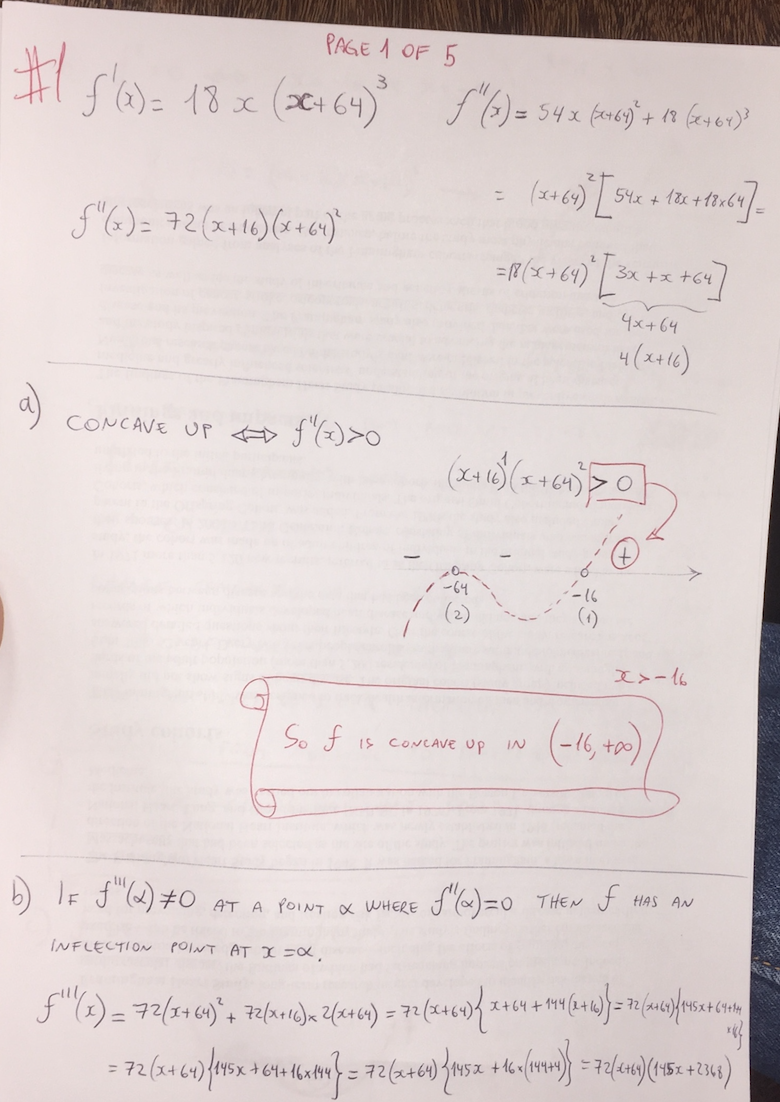 PAGE 1 OF 5
#1 f'(x) = 18x(x+64)³ f''(x) = 54x(x+64)² + 18(x+64)³
= (x+64)²[54x + 18x + 18×64] =
f''(x) = 72(x+16)(x+64)²
= 18(x+64)²[3x + x + 64]
4x+64
4(x+16)
a) CONCAVE UP ⇔ f''(x)>0
(x+16)¹(x+64)² > 0
− − +
-64 -16
(2) (1)
x > -16
So f IS CONCAVE UP IN (-16, +∞)
b) IF f'''(α) ≠ 0 AT A POINT α WHERE f''(α)=0 THEN f HAS AN
INFLECTION POINT AT x = α.
f'''(x) = 72(x+64)² + 72(x+16)×2(x+64) = 72(x+64){x+64 + 144(x+16)} = 72(x+64){145x+64+144
×16}
= 72(x+64){145x + 64 + 16×144} = 72(x+64){145x + 16×(144+4)} = 72(x+64)(145x+2368)